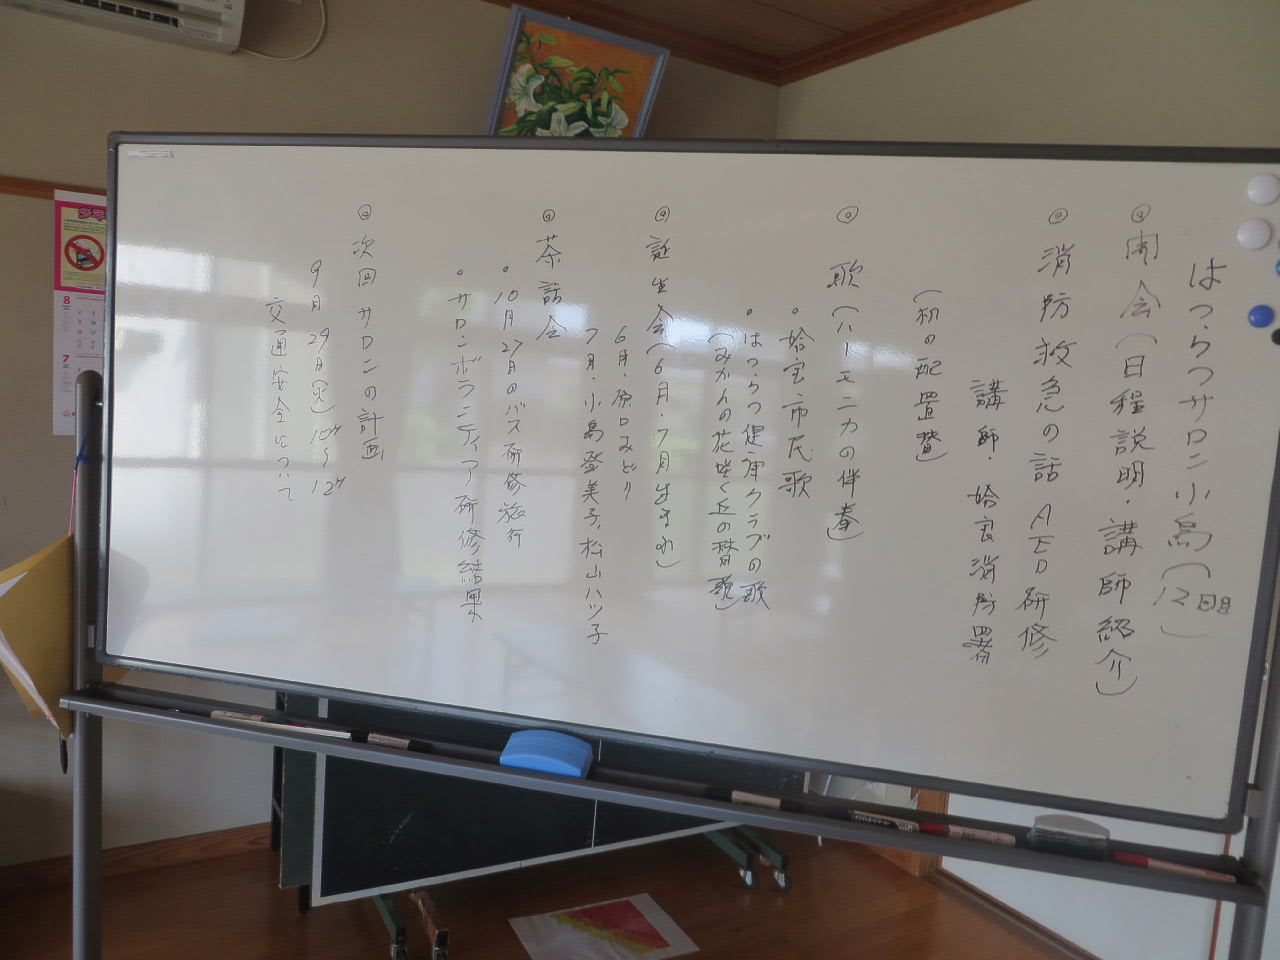 はつらつサロン小島(12回目)
◎開会(日程説明・講師紹介)
◎消防救急の話 AED研修
講師・姶良消防署
(机の配置替)
◎歌(ハーモニカの伴奏)
・姶良市民歌
・はつらつ健康クラブの歌
(みかんの花咲く丘の替歌)
◎誕生会(6月・7月生まれ)
6月・原口みどり
7月・小島登美子、松山ハツ子
◎茶話会
・10月27日のバス研修旅行
・サロンボランティア研修結果
◎次回サロンの計画
9月29日(火)10時〜12時
交通安全について
8
7